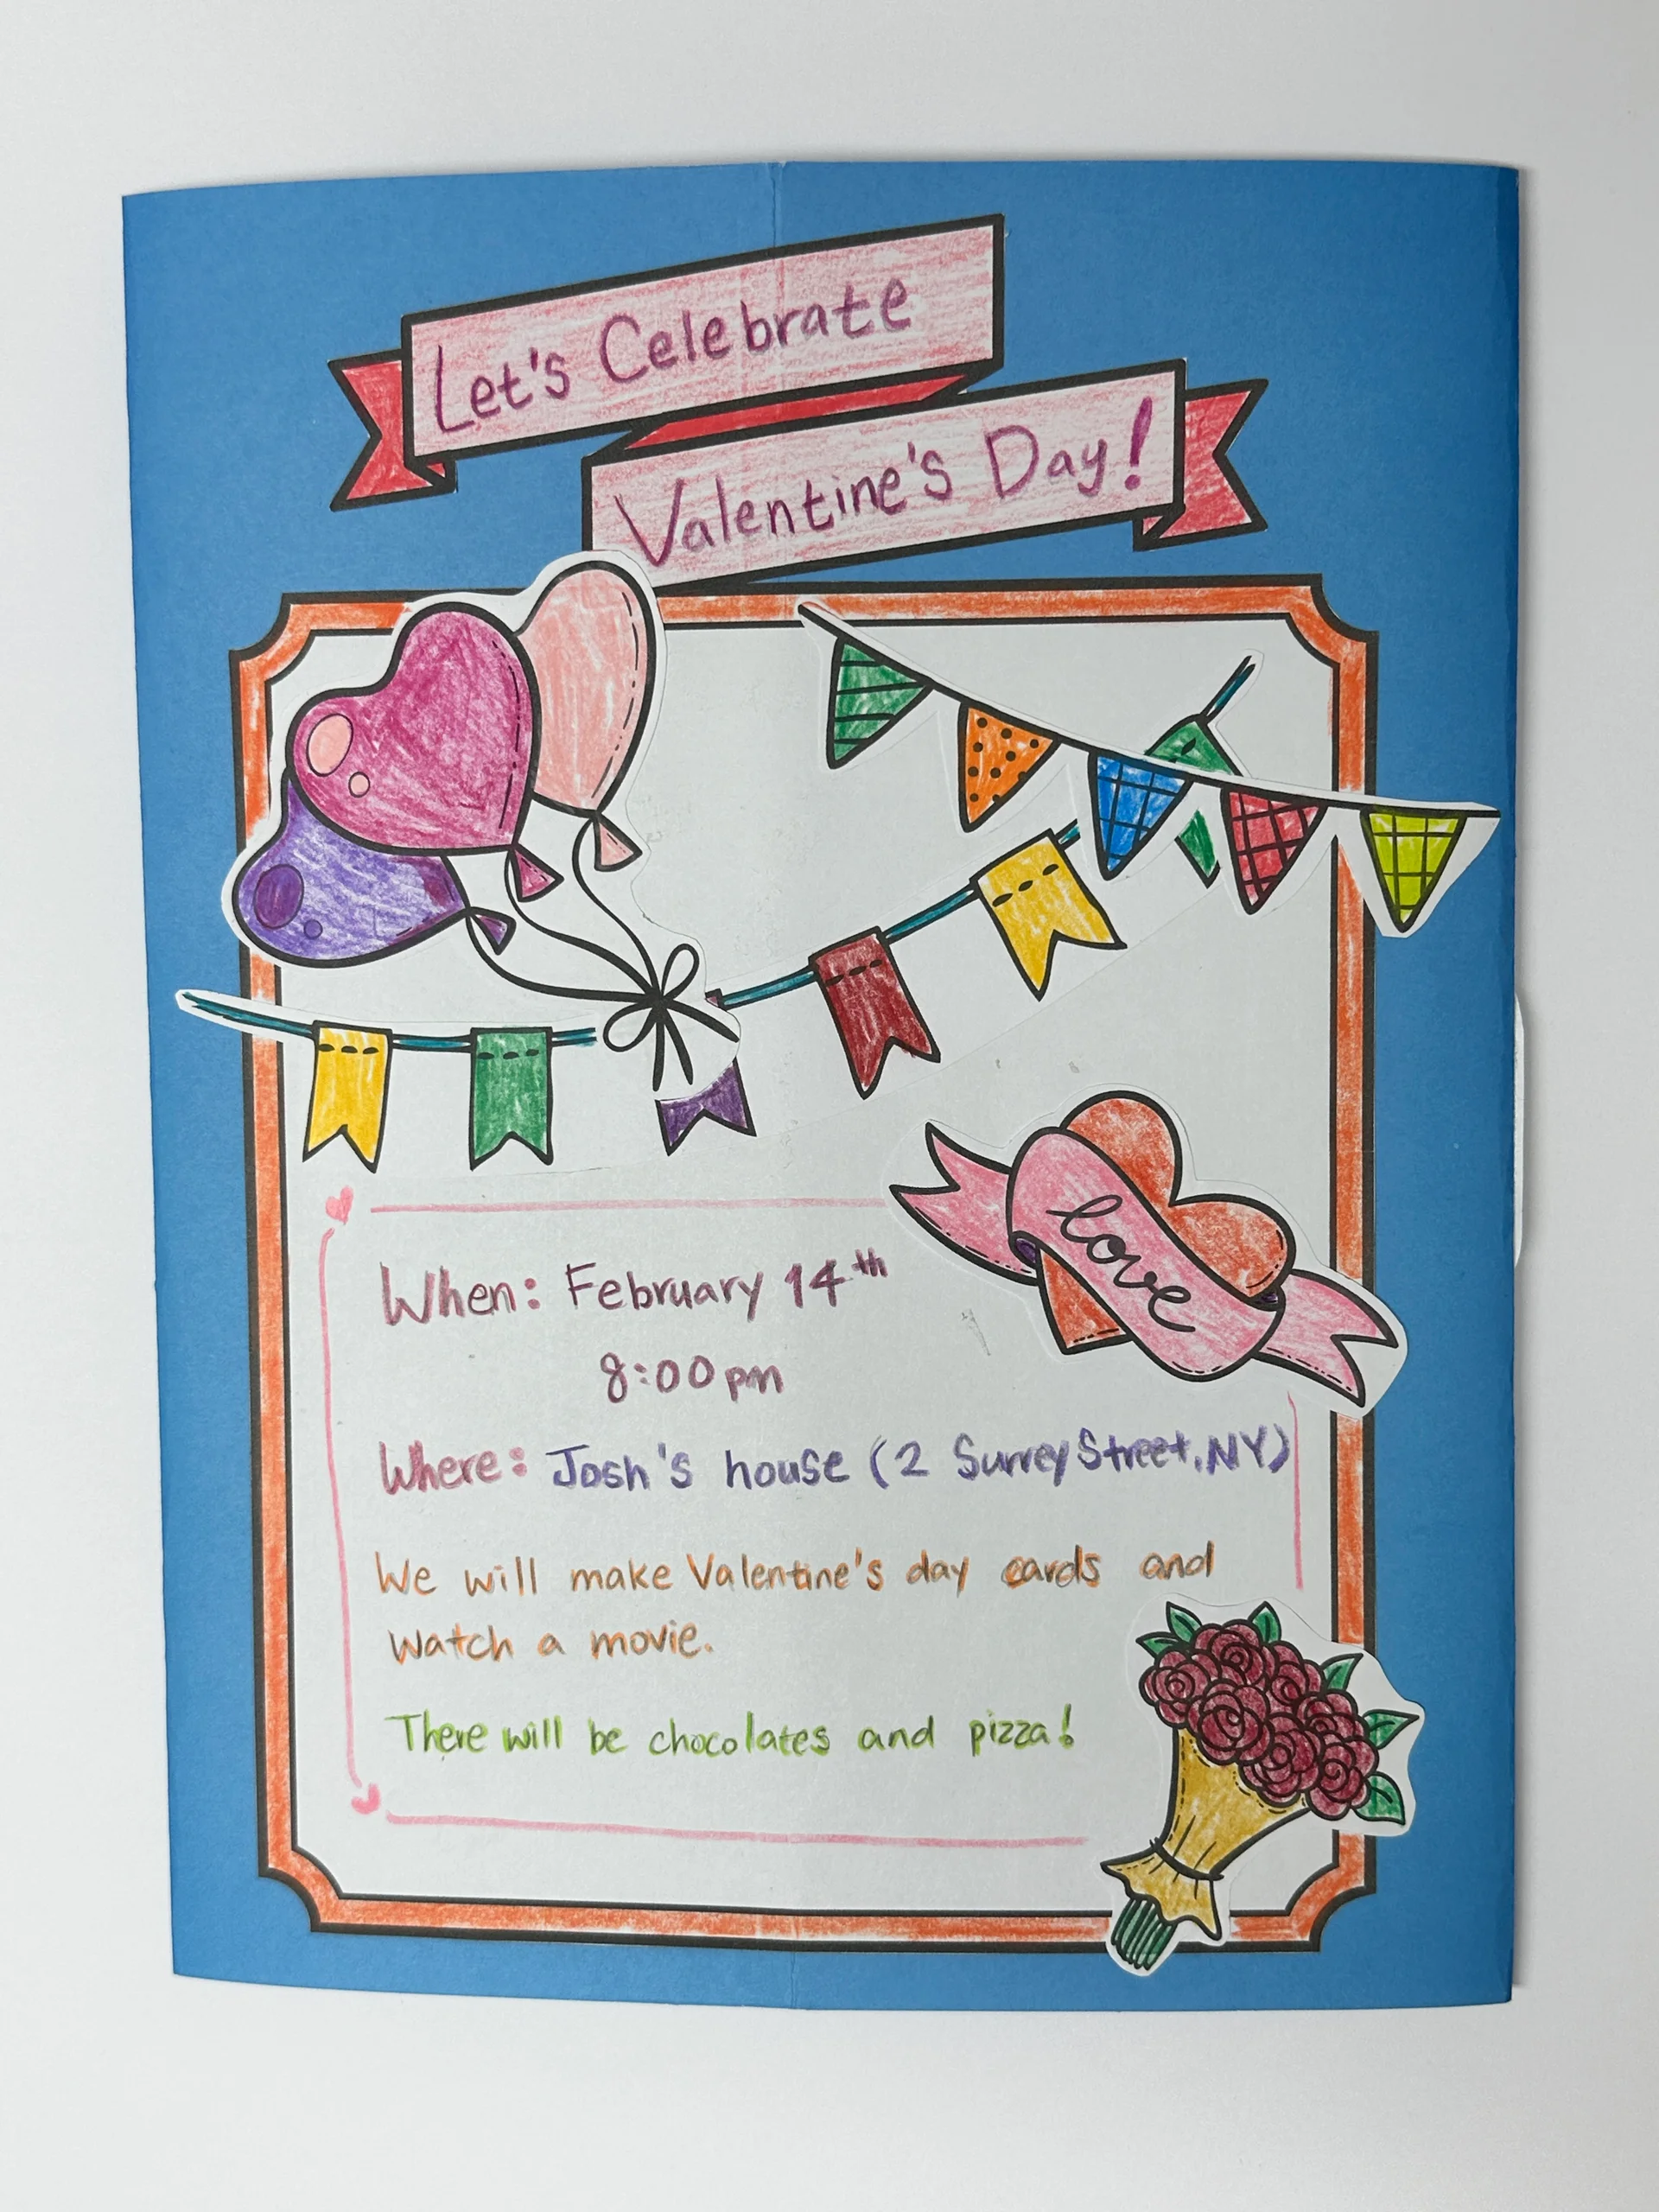 Let's Celebrate
Valentine's Day!
love
When: February 14th
8:00pm
Where: Josh's house (2 Surrey Street, NY)
We will make Valentine's day cards and
watch a movie.
There will be chocolates and pizza!